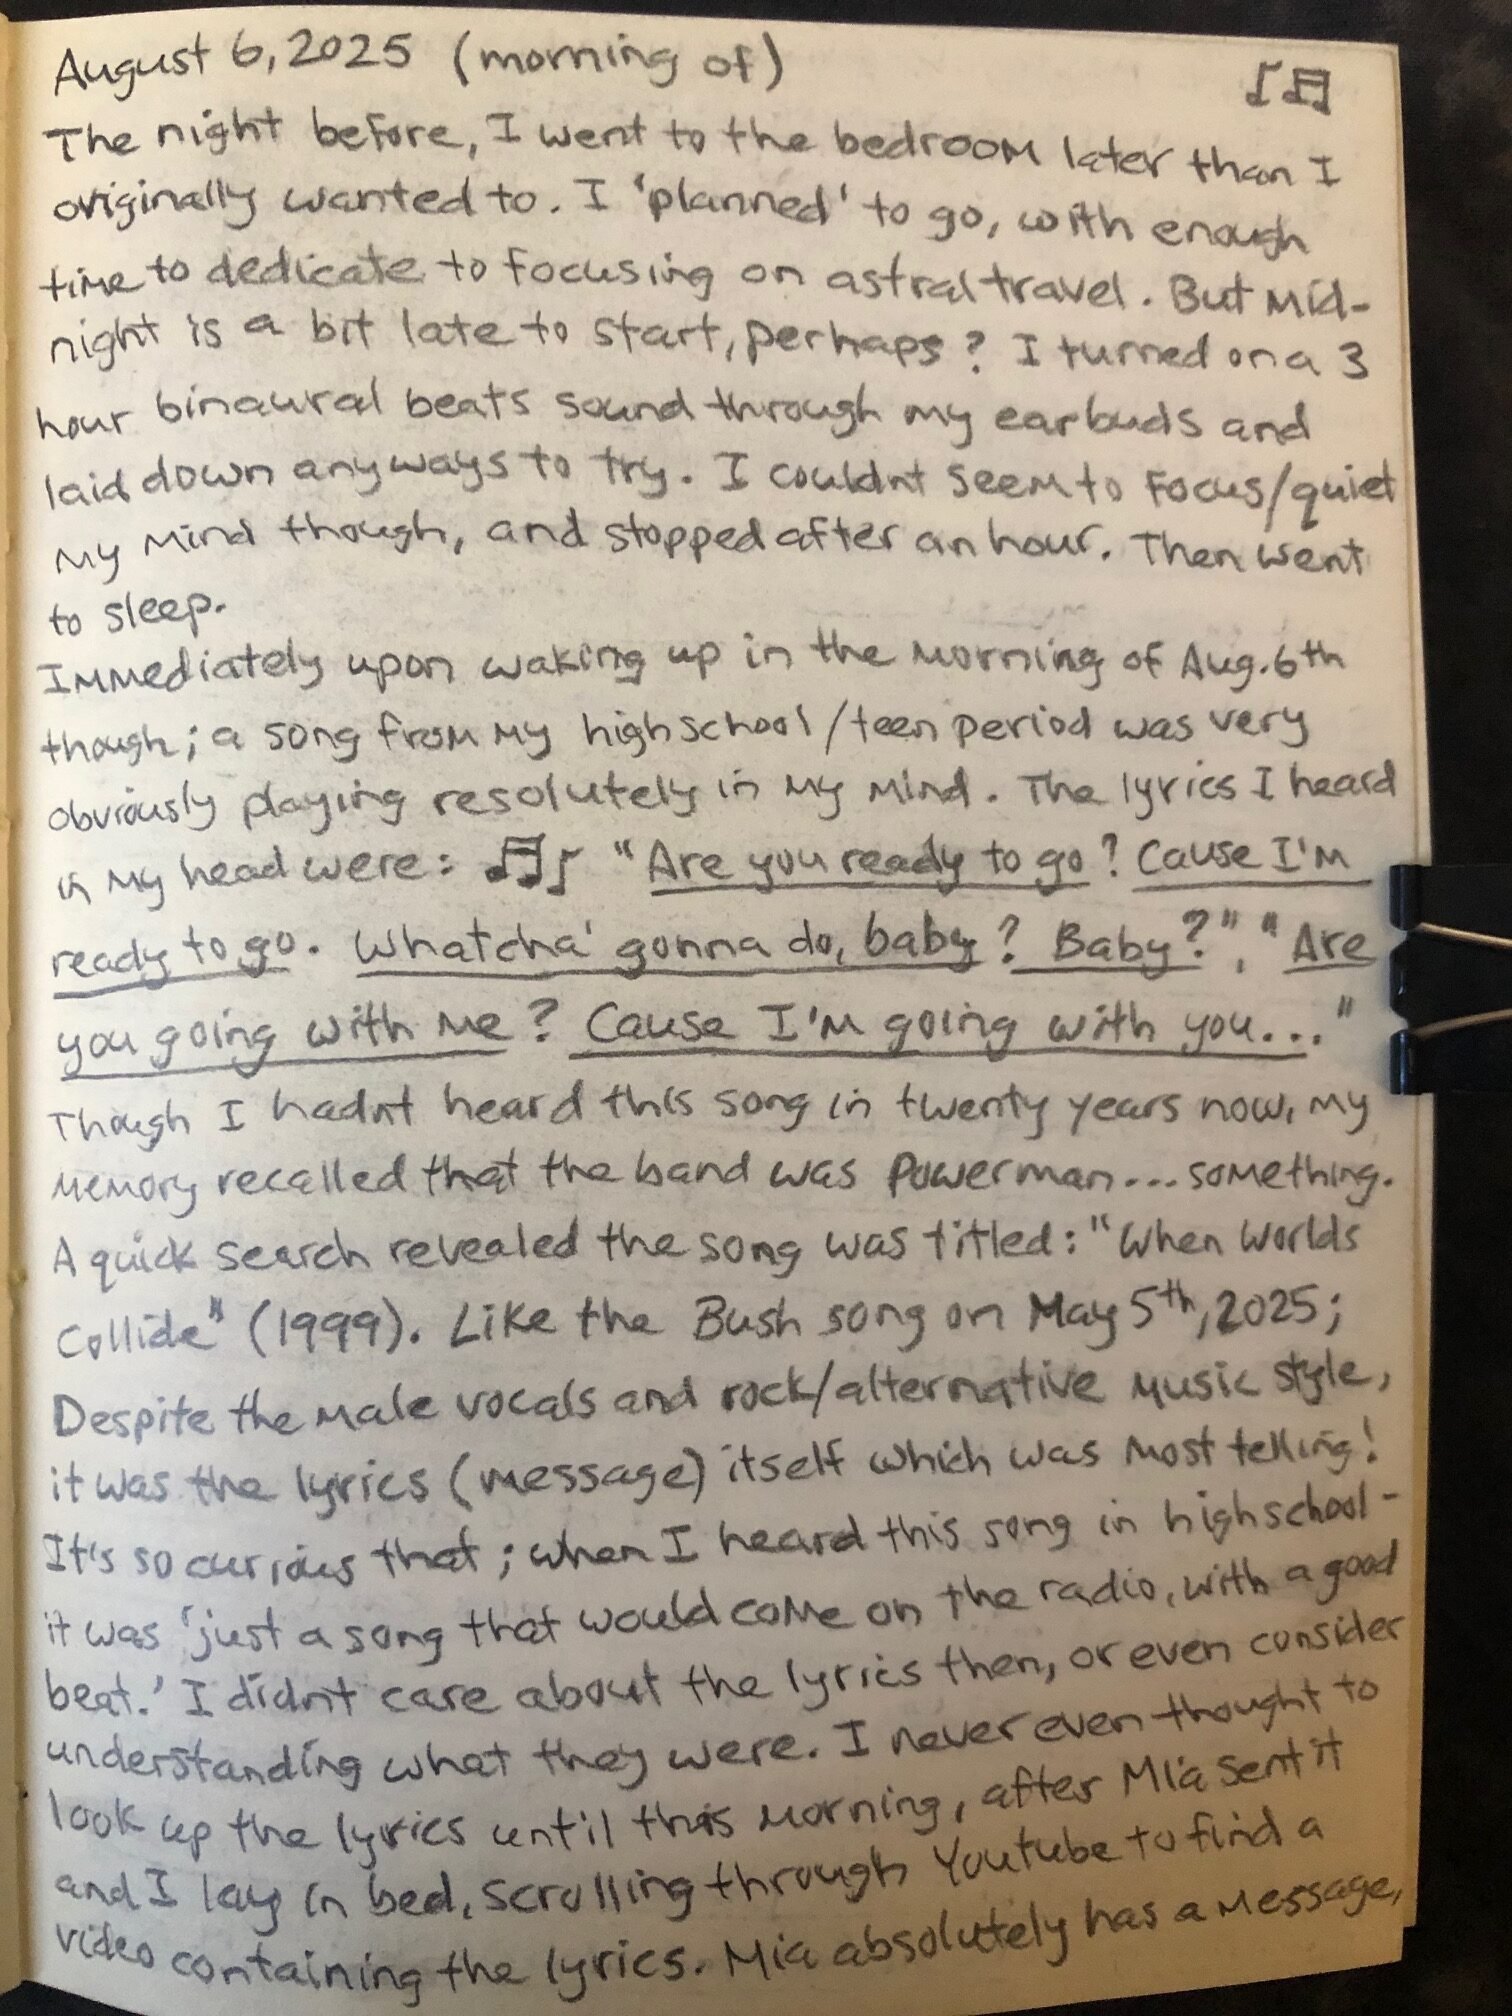 August 6, 2025 (morning of)
The night before, I went to the bedroom later than I
originally wanted to. I 'planned' to go, with enough
time to dedicate to focusing on astral travel. But mid-
night is a bit late to start, perhaps? I turned on a 3
hour binaural beats sound through my earbuds and
laid down anyways to try. I couldnt seem to focus/quiet
my mind though, and stopped after an hour. Then went
to sleep.
Immediately upon waking up in the morning of Aug. 6th
though; a song from my highschool/teen period was very
obviously playing resolutely in my mind. The lyrics I heard
in my head were: "Are you ready to go? Cause I'm
ready to go. Whatcha' gonna do, baby? Baby?", "Are
you going with me? Cause I'm going with you..."
Though I hadnt heard this song in twenty years now, my
memory recalled that the band was Powerman...something.
A quick search revealed the song was titled: "When Worlds
Collide" (1999). Like the Bush song on May 5th, 2025;
Despite the male vocals and rock/alternative music style,
it was the lyrics (message) itself which was most telling!
It's so curious that; when I heard this song in highschool-
it was 'just a song that would come on the radio, with a good
beat.' I didnt care about the lyrics then, or even consider
understanding what they were. I never even thought to
look up the lyrics until this morning, after Mia sent it
and I lay in bed, scrolling through Youtube to find a
video containing the lyrics. Mia absolutely has a message,